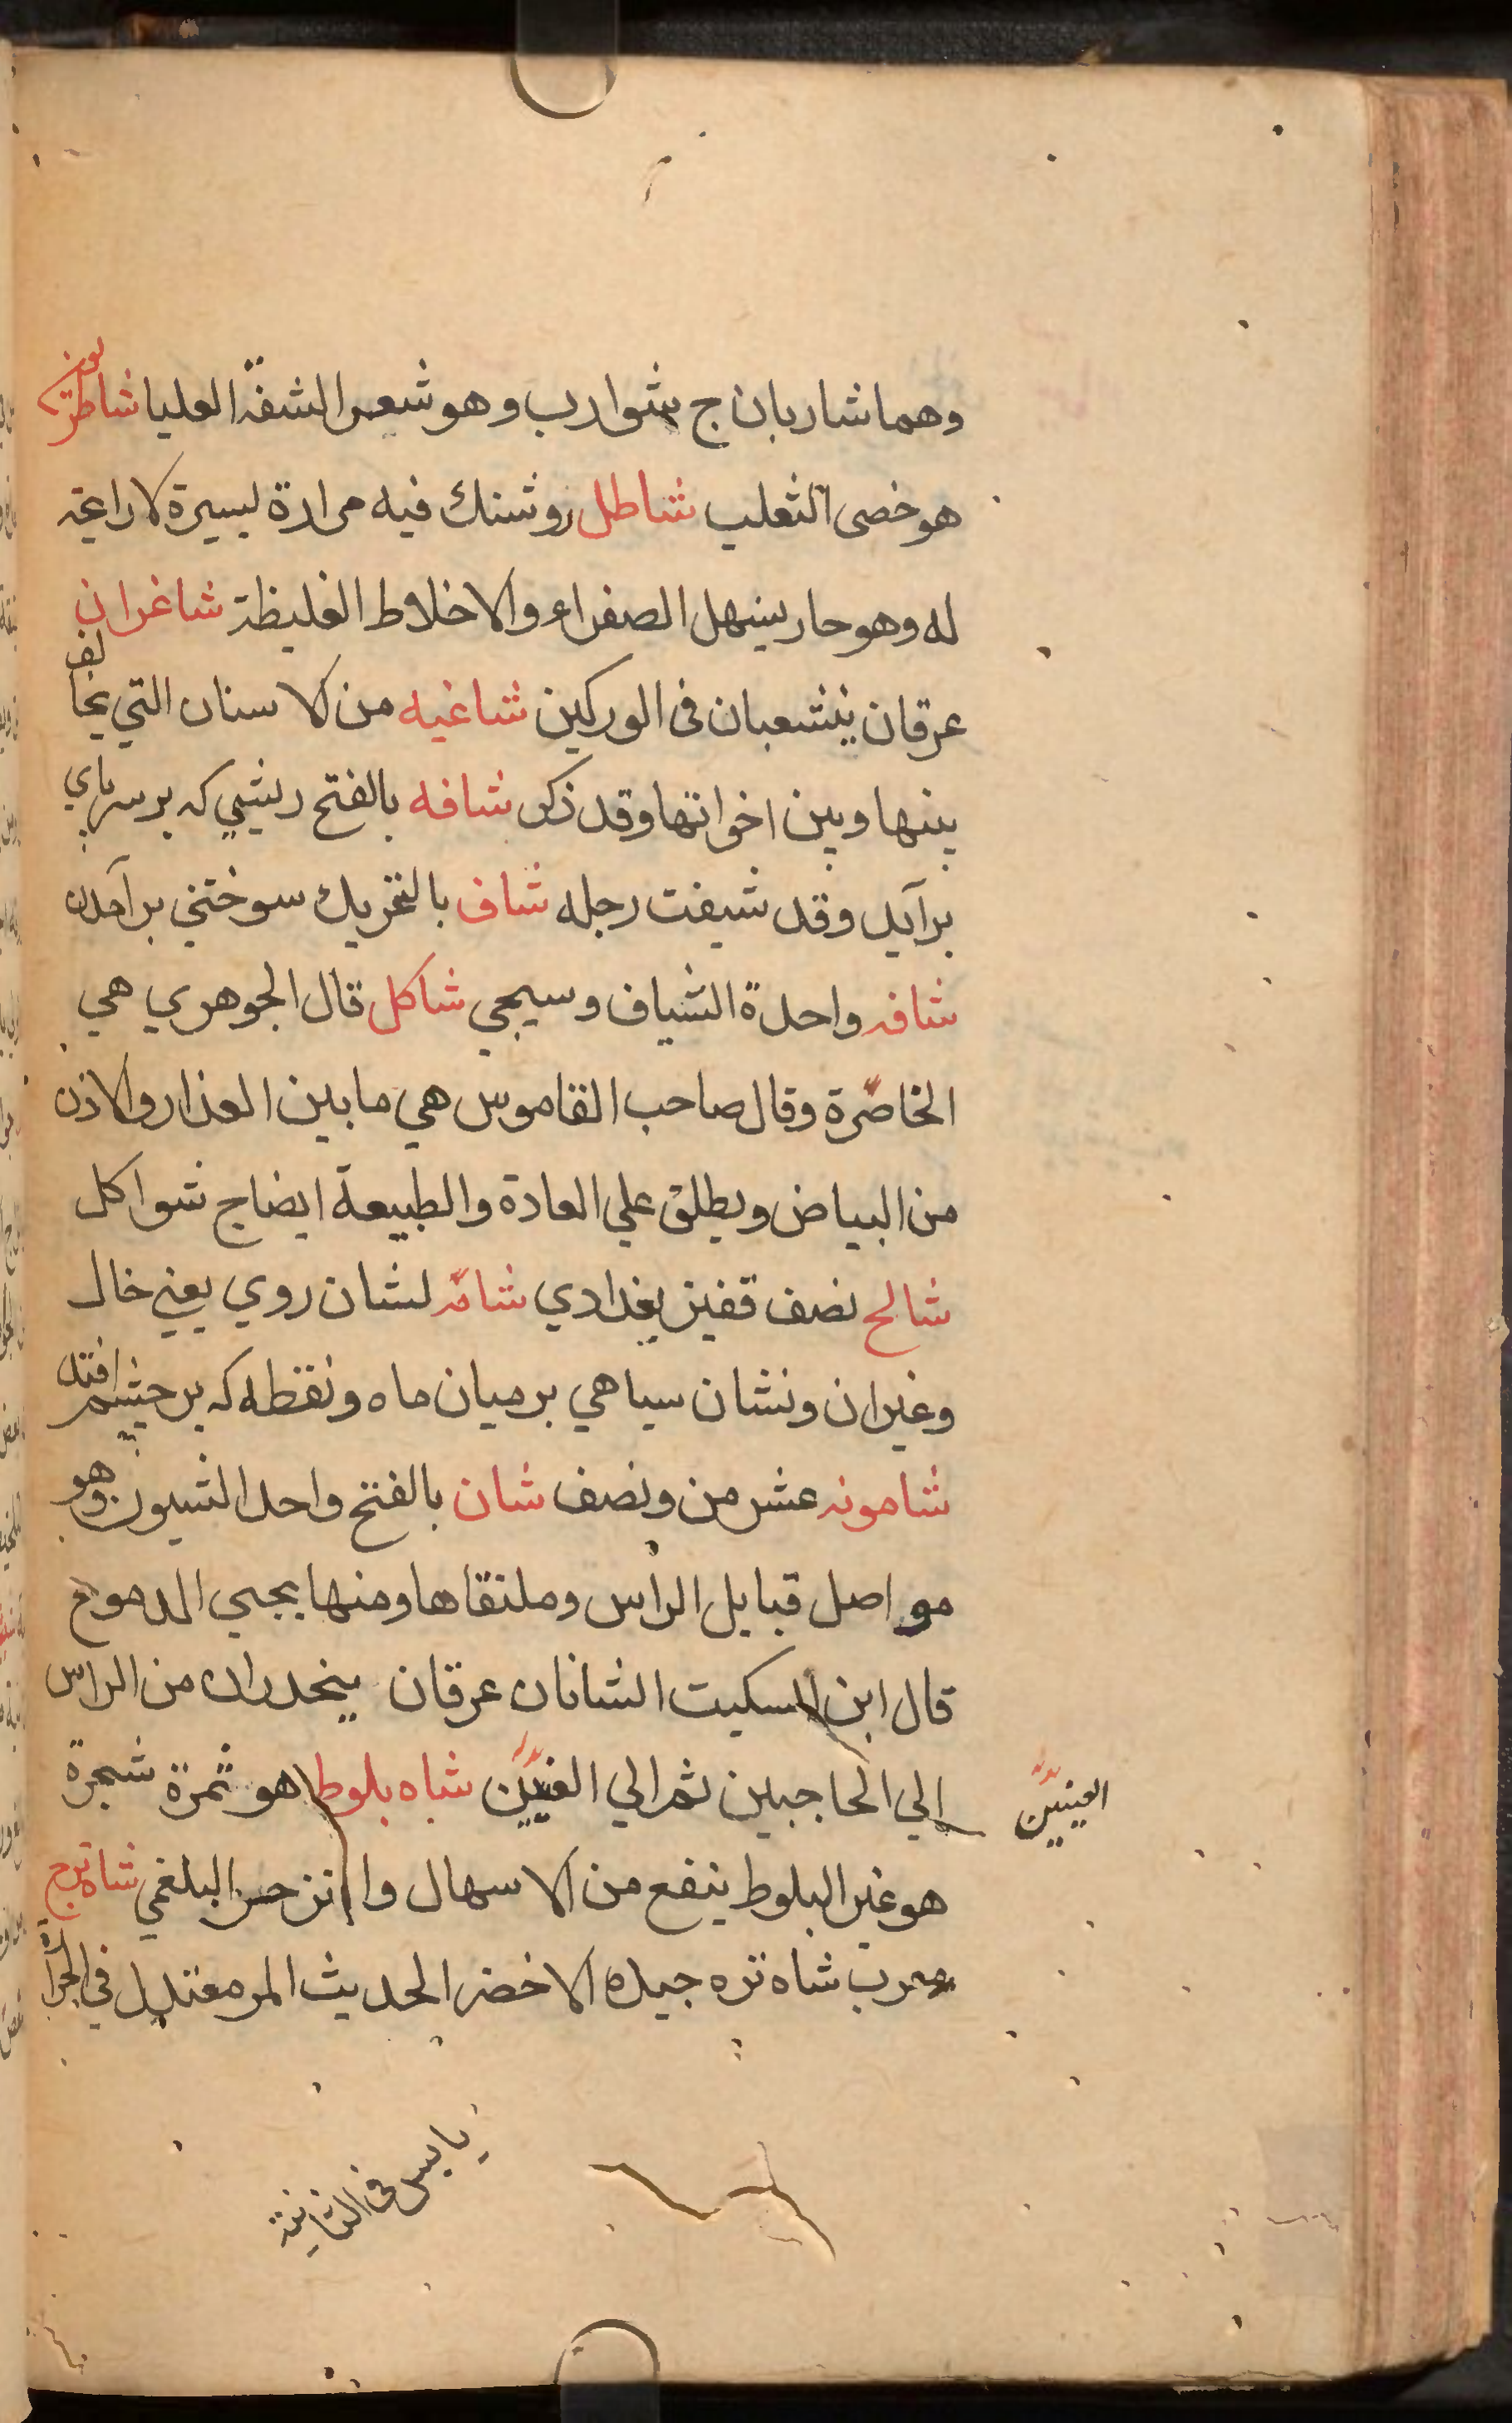 وهما شاربان ج شوارب وهو شعر الشفة العليا شاطريون
هو خصى الثعلب شاطل روشنك فيه مرارة يسيرة لا رائحة
له وهو حار يسهل الصفراء والاخلاط الغليظة شاغران
عرقان ينشعبان فى الوركين شاغيه من الاسنان التي يخالف
بينها وبين اخواتها وقد ذكر شافه بالفتح ريشي كه بر سر پاي
برآيد وقد شيفت رجله شاف بالتحريك سوختني برآمدن
شافه واحدة الشياف وسيجي شاكل قال الجوهري هي
الخاصرة وقال صاحب القاموس هي ما بين العذار والاذن
من البياض ويطلق علي العادة والطبيعة ايضا ج شواكل
شالخ نصف قفيز بغدادي شامه نشان روي يعني خال
وغيران ونشان سياهي بر ميان ماه ونقطه كه بر چشم افتد
شامونه عشر من ونصف شان بالفتح واحد الشيون وهو
مواصل قبايل الراس وملتقاها ومنها يجيي الدموع
قال ابن السكيت الشانان عرقان ينحدران من الراس
الي الحاجبين ثم الي العينين شاه بلوط هو ثمرة شجرة
العينين
هو غير البلوط ينفع من الاسهال والزحر البلغمي شاهترج
معرب شاه تره جيده الاخضر الحديث المر معتدل في الحرارة
يابس في الثانية